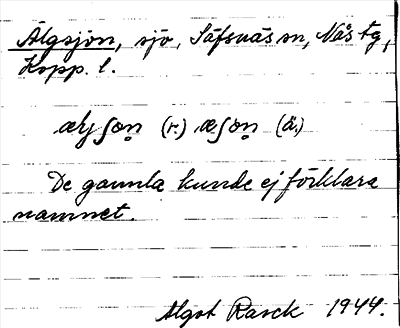 Älgsjön, sjö, Säfsnäs sn, Nås tg,
Kopp. l.
(r.) (ä.)
De gamla kunde ej förklara
namnet.
Algot Rasck 1944.